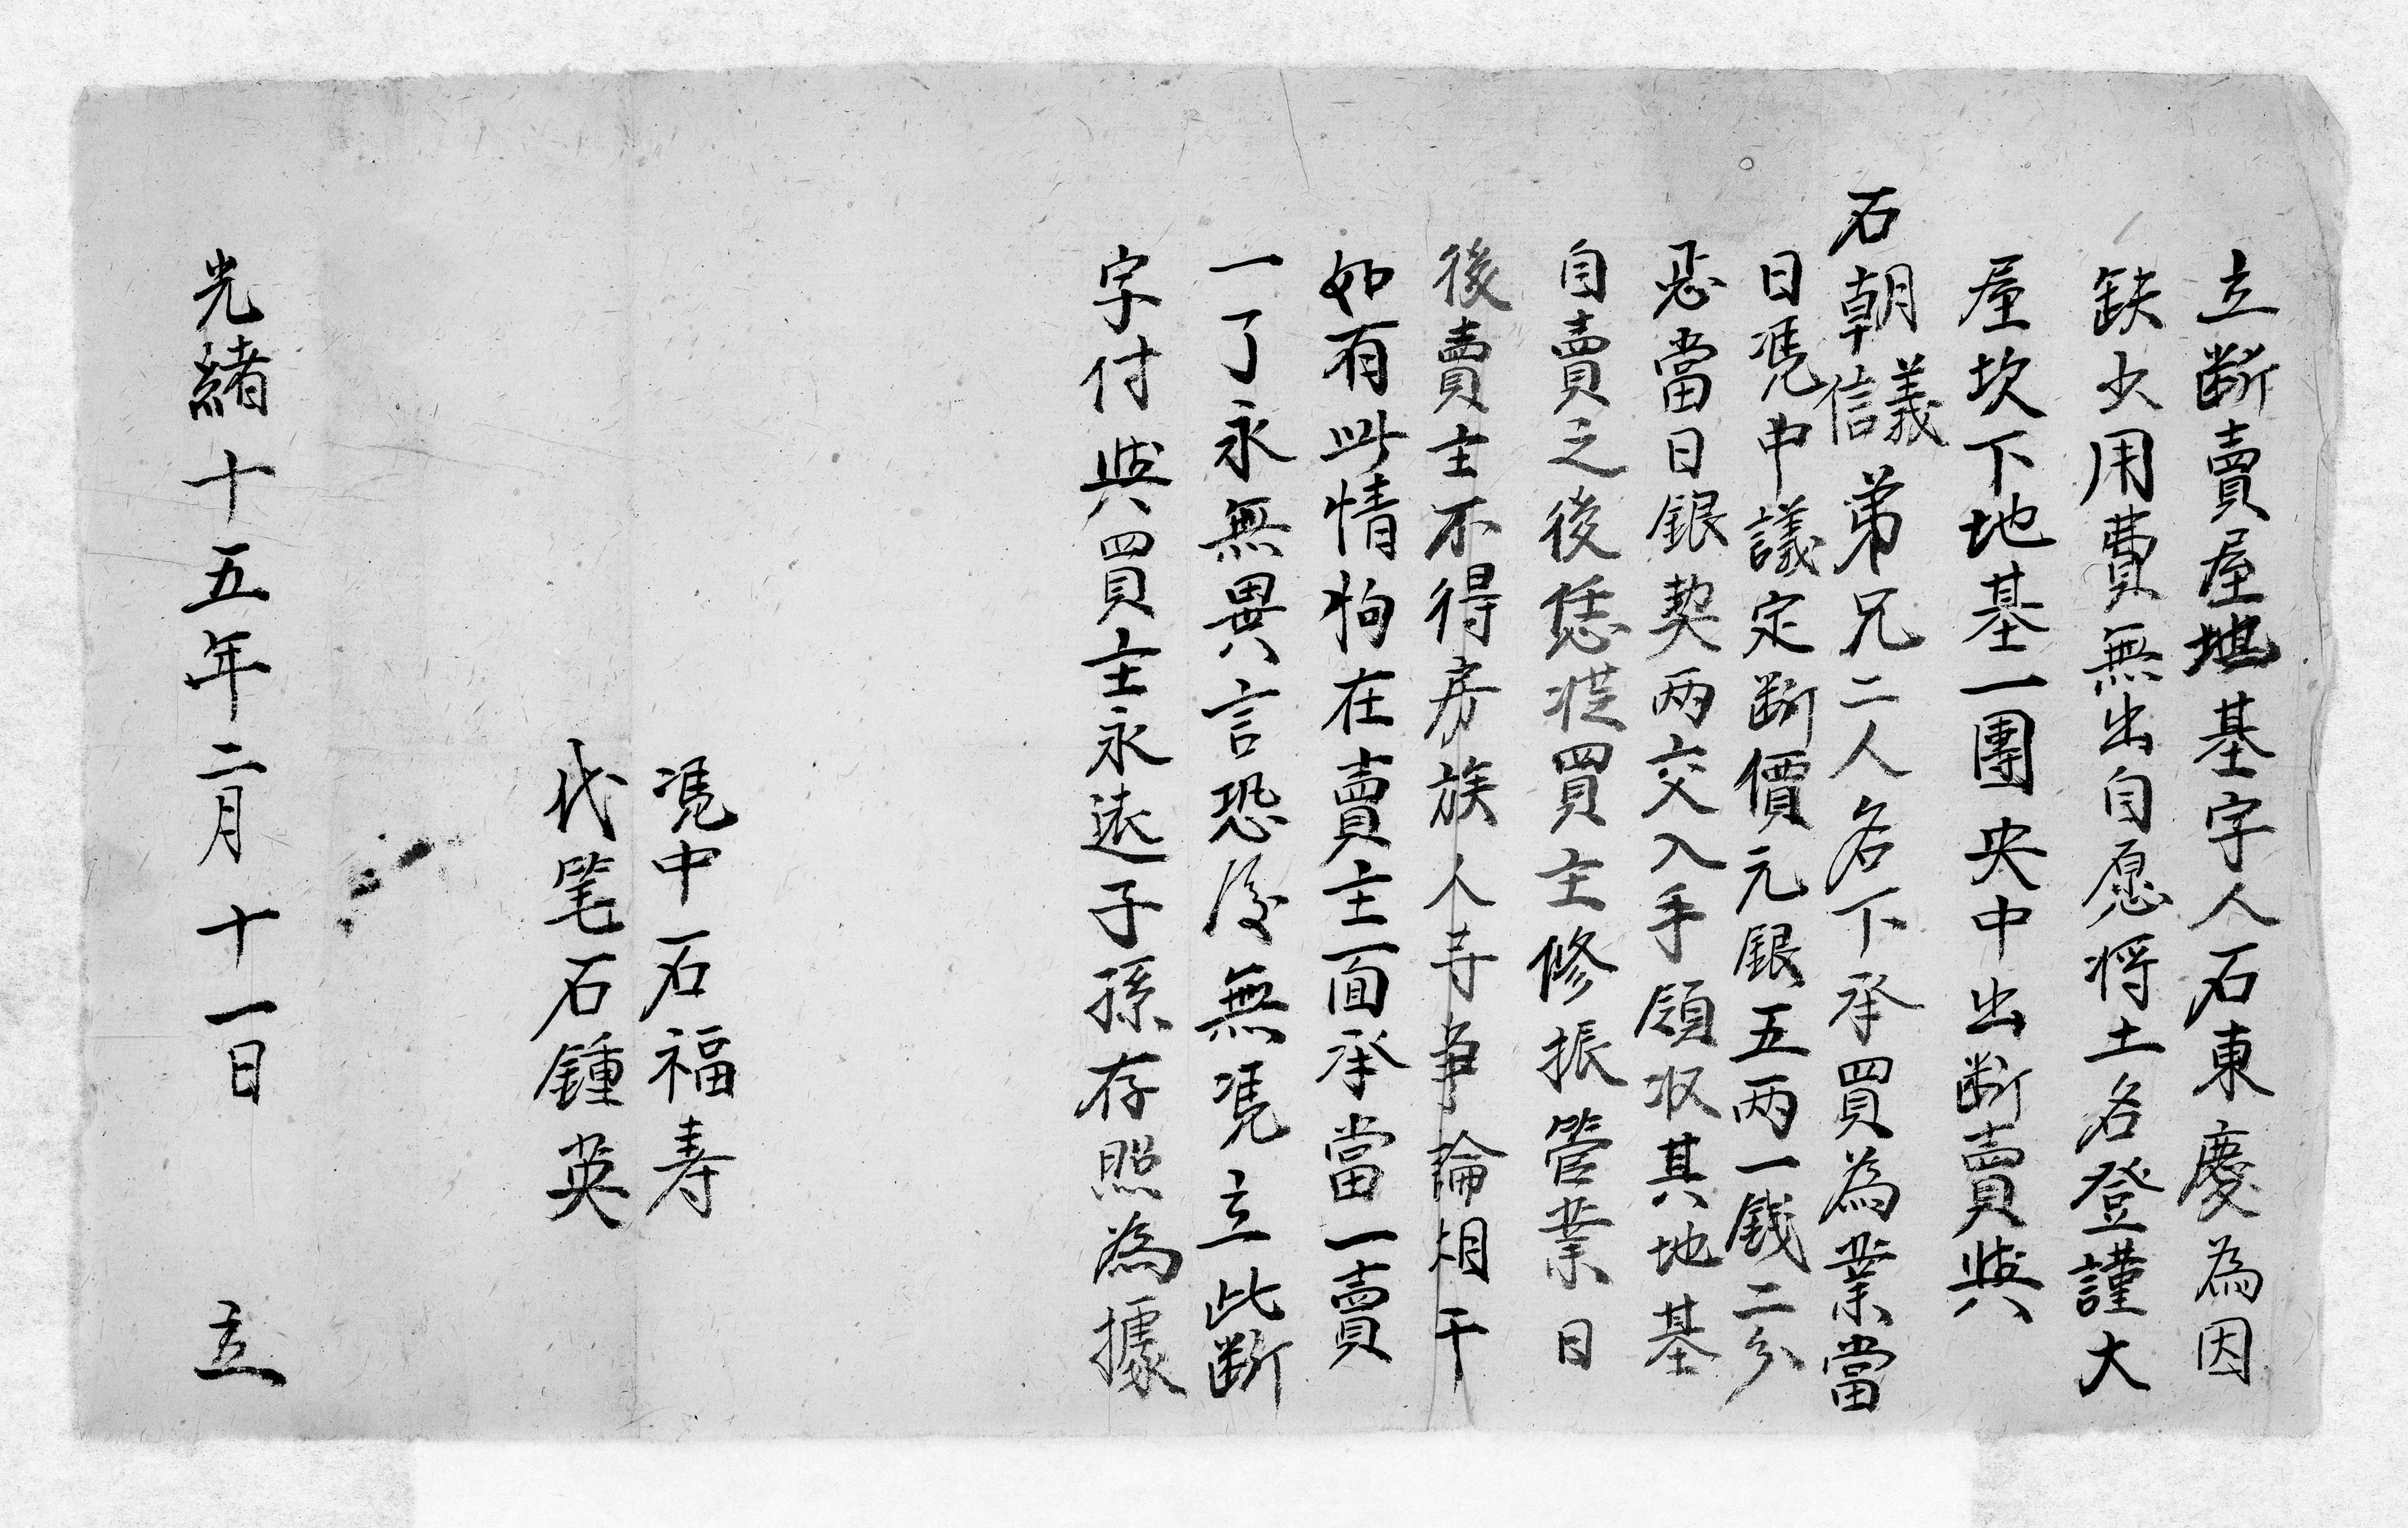 立断賣屋地基字人石東慶為因
缺少用費無出自愿将土名登謹大
屋坎下地基一團央中出断賣與
石朝信議弟兄二人名下承買為業當
日凴中議定断價元銀五两一錢二分
當日銀契两交入手領収其地基
自賣之後恁從買主修振管業日
後賣主不得房族人等争論相干
如有此情拘在賣主面承當一賣
一了永無異言恐後無凴立此断
字付與買主永遠子孫存照為據
凴中石福寿
代笔石鍾英
光緒十五年二月十一日立